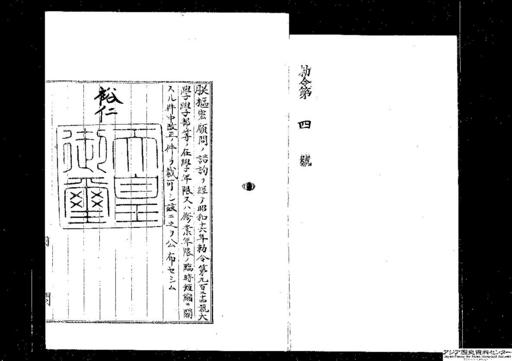 勅令第四號
朕樞密顧問ノ諮詢ヲ經テ昭和十六年勅令第九百二十四號大
學學部等ノ在學年限又ハ修業年限ノ臨時短縮ニ關
スル件中改正ノ件ヲ裁可シ茲ニ之ヲ公布セシム
裕仁
天皇
御璽
内閣
アジア歴史資料センター